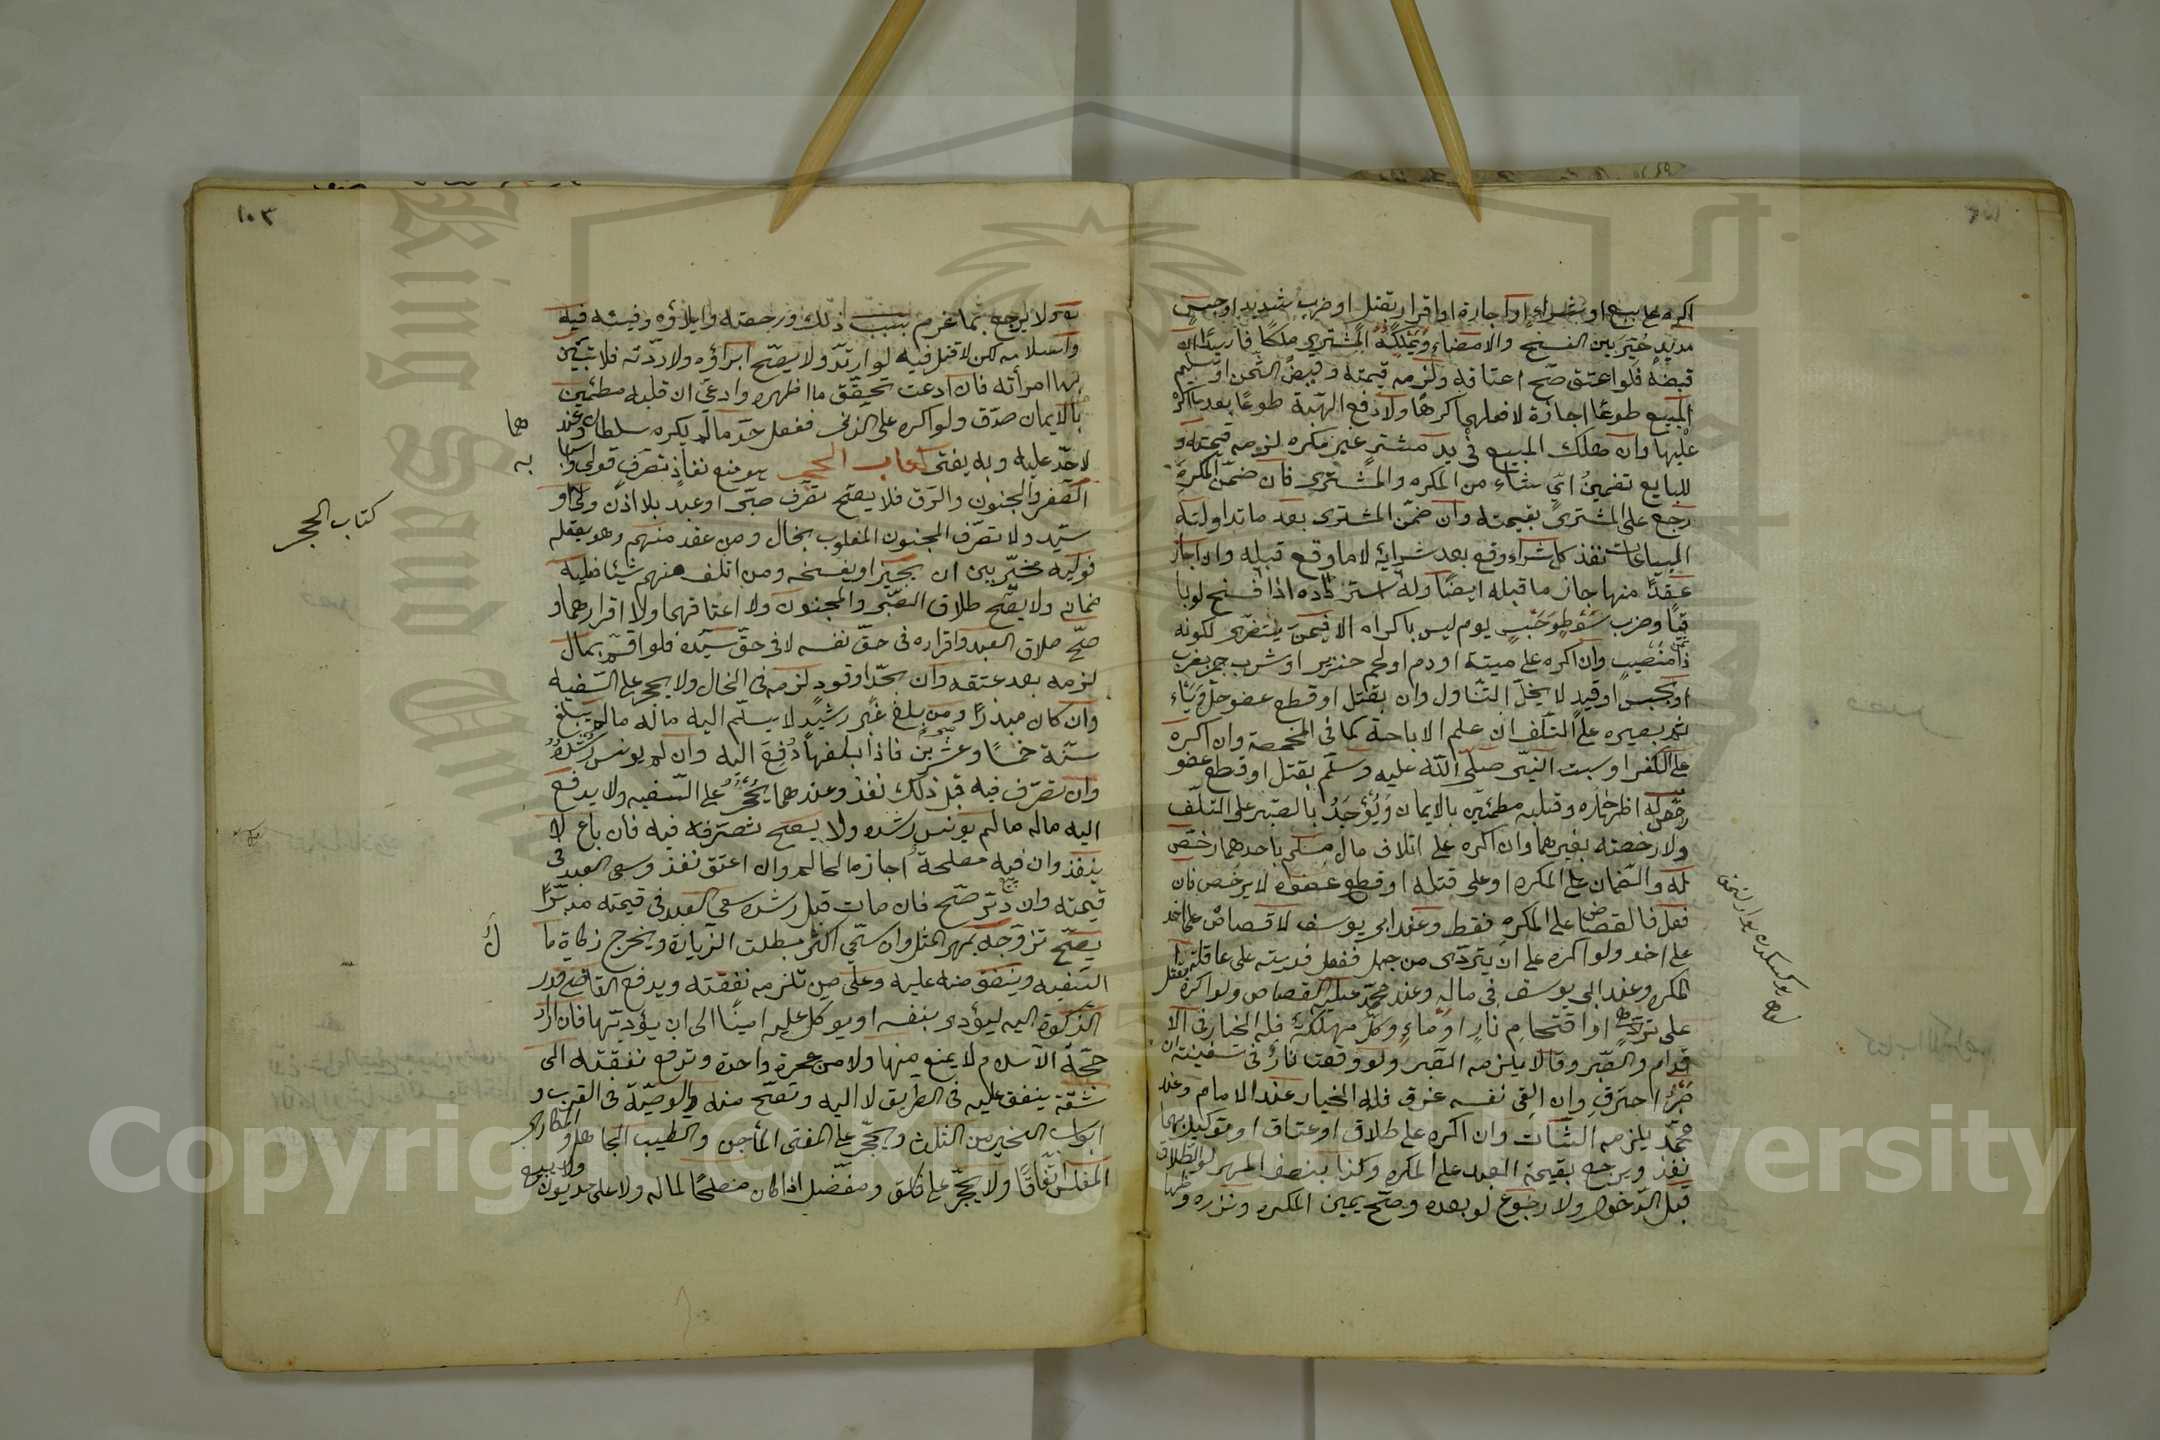 اكره على بيع او شراء او اجارة او اقرار بقتل او ضرب شديد او حبس
مديد خير بين الفسخ والامضاء ويملكه المشتري ملكا فاسدا ان
قبضه فلو اعتق صح اعتاقه ولزمه قيمته وقبض الثمن او تسليم
المبيع طوعا اجازة لا فعلهما كرها ولا دفع الهبة طوعا بعد ما اكره
عليها وان هلك المبيع في يد مشتر غير مكره لزمه قيمته و
للبايع تضمين اي شاء من المكره والمشتري فان ضمن المكره
رجع على المشتري بقيمته وان ضمن المشتري بعد ما تداولته
البياعات نفذ كل شراء وقع بعد شرائه لا ما وقع قبله وان اجاز
عقدا منها جاز ما قبله ايضا وله استرداده اذا فسخ لو باقيا
وضرب سوط وحبس يوم ليس باكراه الا فيمن يتضرر لكونه
ذا منصب وان اكره على ميتة او دم او لحم خنزير او شرب خمر بضرب
او بحبس او قيد لا يحل التناول وان بقتل او قطع عضو حل وياثم
بصبره على التلف ان علم الاباحة كما في المخمصة وان اكره
على الكفر او سب النبي صلى الله عليه وسلم بقتل او قطع عضو
رخص له اظهاره وقلبه مطمئن بالايمان ويؤجر بالصبر على التلف
ولا رخصة بغيرهما وان اكره على اتلاف مال مسلم باحدهما رخص
له والضمان على المكره او على قتله او قطع عضوه لا يرخص فان
فعل فالقصاص على المكره فقط وعند ابي يوسف لا قصاص على احد
ولو اكره على ان يتردى من جبل ففعل فديته على عاقلة
المكره وعند ابي يوسف في ماله وعند محمد عليه القصاص ولو اكره بقتل
على ترد او اقتحام نار او ماء وكل مهلكة فله الخيار في الا
قدام والصبر وقالا يلزمه الصبر ولو وقعت نار في سفينة ان
صبر احترق وان القى نفسه غرق فله الخيار عند الامام وعند
محمد يلزمه الثبات وان اكره على طلاق او عتاق او توكيل بهما
نفذ ويرجع بقيمة العبد على المكره وكذا بنصف المهر لو الطلاق
قبل الدخول ولا رجوع لو بعده وصح يمين المكره ونذره و
١٠٣
ولا يرجع بما غرم بسبب ذلك ورجعته وايلاؤه وفيئه فيه
واسلامه لكن لا قتل فيه لو ارتد ولا يصح ابراؤه ولا ردته فلا تبين
بها امراته فان ادعت تحقق ما اظهره وادعى ان قلبه مطمئن
بالايمان صدق ولو اكره على الزنى ففعل حد ما لم يكره سلطان وعند
هما
لا حد عليه وبه يفتى كتاب الحجر هو منع نفاذ تصرف قولي واسبا
به
الصغر والجنون والرق فلا يصح تصرف صبي او عبد بلا اذن ولي او
كتاب الحجر
سيد ولا تصرف المجنون المغلوب بحال ومن عقد منهم وهو يعقله
فوليه مخير بين ان يجيز او يفسخه ومن اتلف منهم شيئا فعليه
ضمانه ولا يصح طلاق الصبي والمجنون ولا اعتاقهما ولا اقرارهما و
صح طلاق العبد واقراره في حق نفسه لا في حق سيده فلو اقر بمال
لزمه بعد عتقه وان بحد او قود لزمه في الحال ولا يحجر على السفيه
وان كان مبذرا ومن بلغ غير رشيد لا يسلم اليه ماله ما لم يبلغ
سنه خمسا وعشرين فاذا بلغها دفع اليه وان لم يونس رشده
وان تصرف فيه قبل ذلك نفذ وعندهما يحجر على السفيه ولا يدفع
اليه ماله ما لم يونس رشده ولا يصح تصرفه فيه فان باع لا
ينفذ وان فيه مصلحة اجازه الحاكم وان اعتق نفذ وسعى العبد في
قيمته وان دبر صح فان مات قبل رشده سعى العبد في قيمته مدبرا
يصح تزوجه بمهر المثل وان سمى اكثر بطلت الزيادة ويخرج زكاة ما
السفيه وينفق منه عليه وعلى من تلزمه نفقته ويدفع القاضي قدر
الزكوة اليه ليؤدي بنفسه او يوكل عليه امينا الى ان يؤديها فان اراد
حجة الاسلام لا يمنع منها ولا من عمرة واحدة وتدفع نفقته الى
ثقة ينفق عليه في الطريق لا اليه وتصح منه الوصية في القرب و
ابواب الخير من الثلث ويحجر على المفتي الماجن والطبيب الجاهل والمكاري
المفلس اتفاقا ولا يحجر على فاسق ومغفل اذا كان مصلحا لماله ولا على مديون ولا يبيع
Copyright © King Saud University
King Saud University